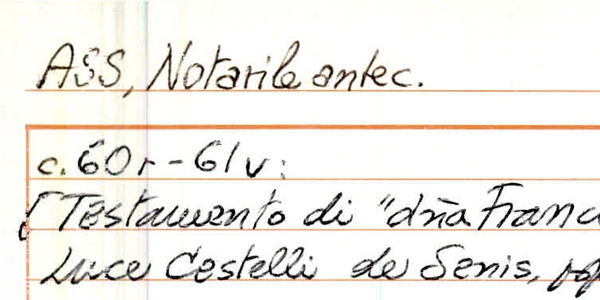 ASS, Notarile antec.
c. 60r-61v:
[Testamento di "dña Franc
Luce Costelli de Senis,